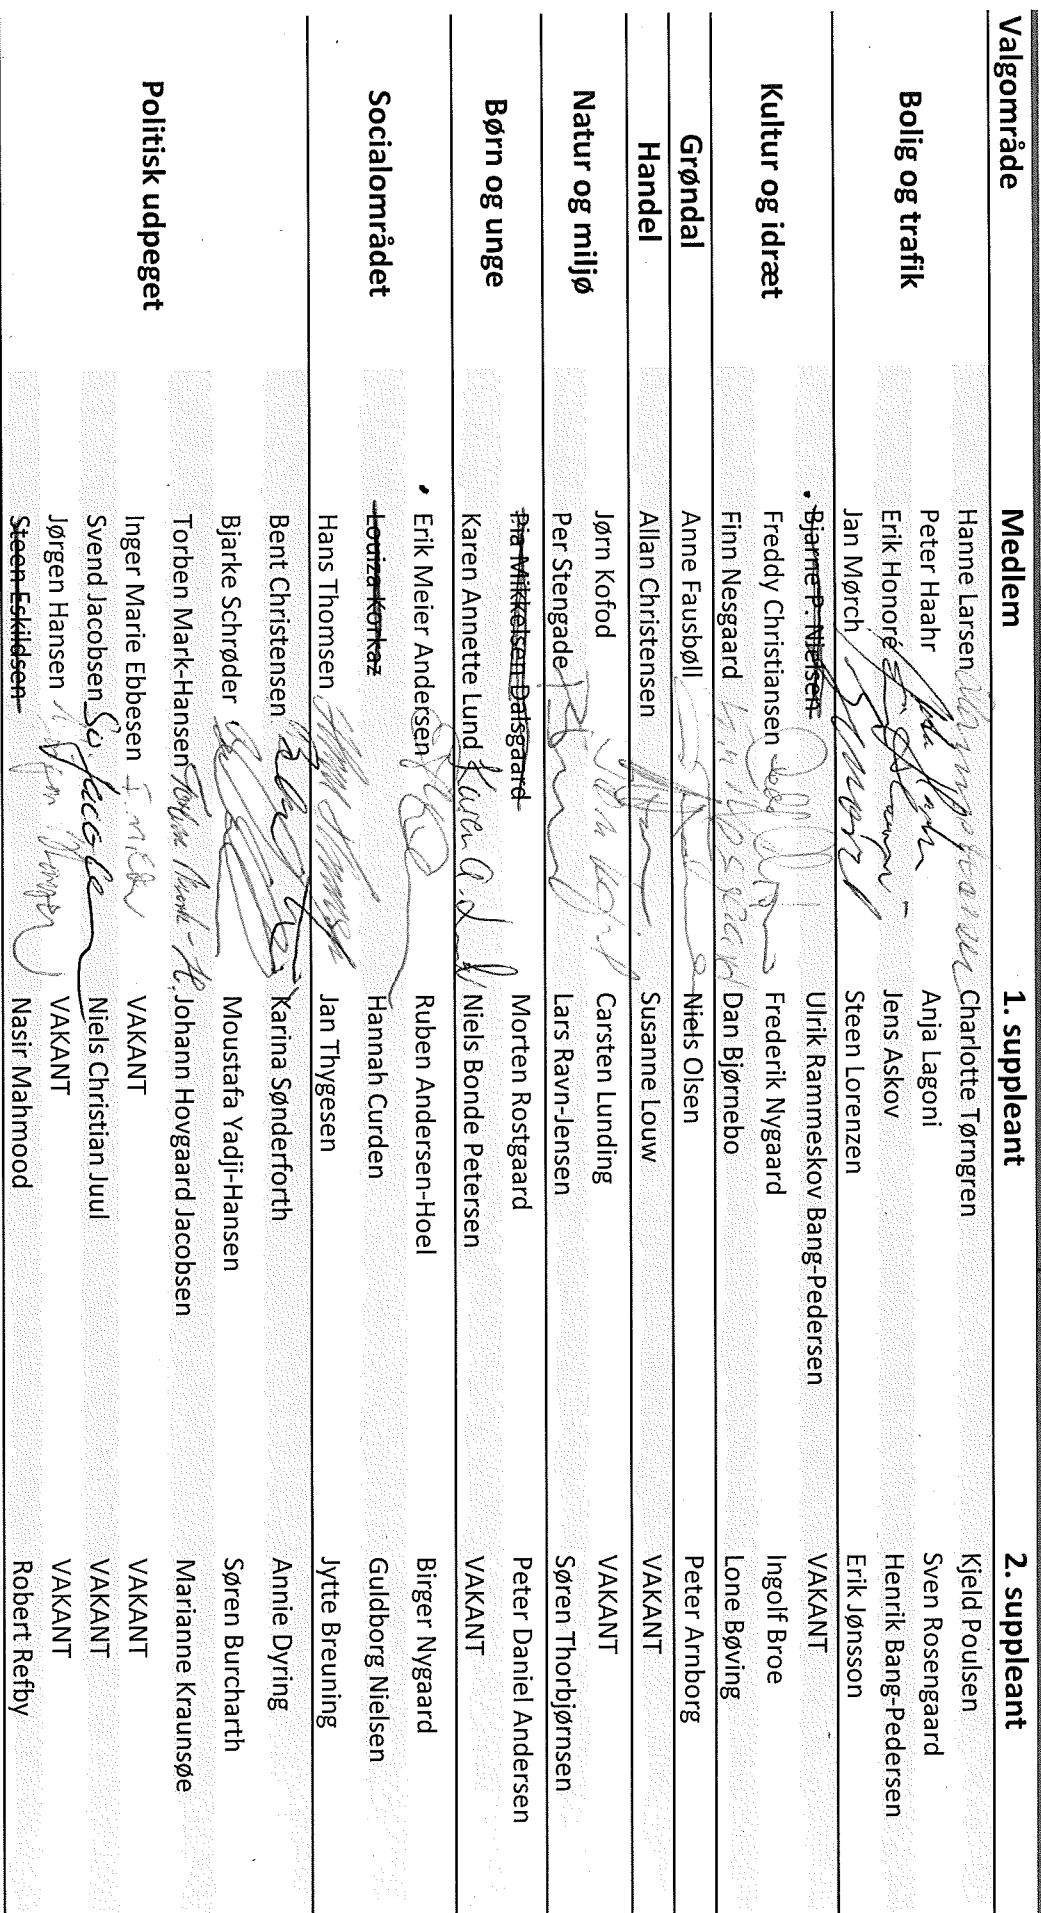 Valgområde Medlem 1. suppleant 2. suppleant
Bolig og trafik
Hanne Larsen Charlotte Tørngren Kjeld Poulsen
Peter Haahr Anja Lagoni Sven Rosengaard
Erik Honoré Jens Askov Henrik Bang-Pedersen
Jan Mørch Steen Lorenzen Erik Jønsson
Kultur og idræt
Bjarne P. Nielsen Ulrik Rammeskov Bang-Pedersen VAKANT
Freddy Christiansen Frederik Nygaard Ingolf Broe
Finn Nesgaard Dan Bjørnebo Lone Bøving
Grøndal Anne Fausbøll Niels Olsen Peter Arnborg
Handel Allan Christensen Susanne Louw VAKANT
Natur og miljø
Jørn Kofod Carsten Lunding VAKANT
Per Stengade Lars Ravn-Jensen Søren Thorbjørnsen
Børn og unge
Pia Mikkelsen Dalsgaard Morten Rostgaard Peter Daniel Andersen
Karen Annette Lund Karen A. Lund Niels Bonde Petersen VAKANT
Socialområdet
Erik Meier Andersen Ruben Andersen-Hoel Birger Nygaard
Louiza Korkaz Hannah Curden Guldborg Nielsen
Hans Thomsen Jan Thygesen Jytte Breuning
Politisk udpeget
Bent Christensen Karina Sønderforth Annie Dyring
Bjarke Schrøder Moustafa Yadji-Hansen Søren Burcharth
Torben Mark-Hansen Torben Mark-H. Johann Hovgaard Jacobsen Marianne Kraunsøe
Inger Marie Ebbesen VAKANT VAKANT
Svend Jacobsen Niels Christian Juul VAKANT
Jørgen Hansen VAKANT VAKANT
Steen Eskildsen Nasir Mahmood Robert Refby